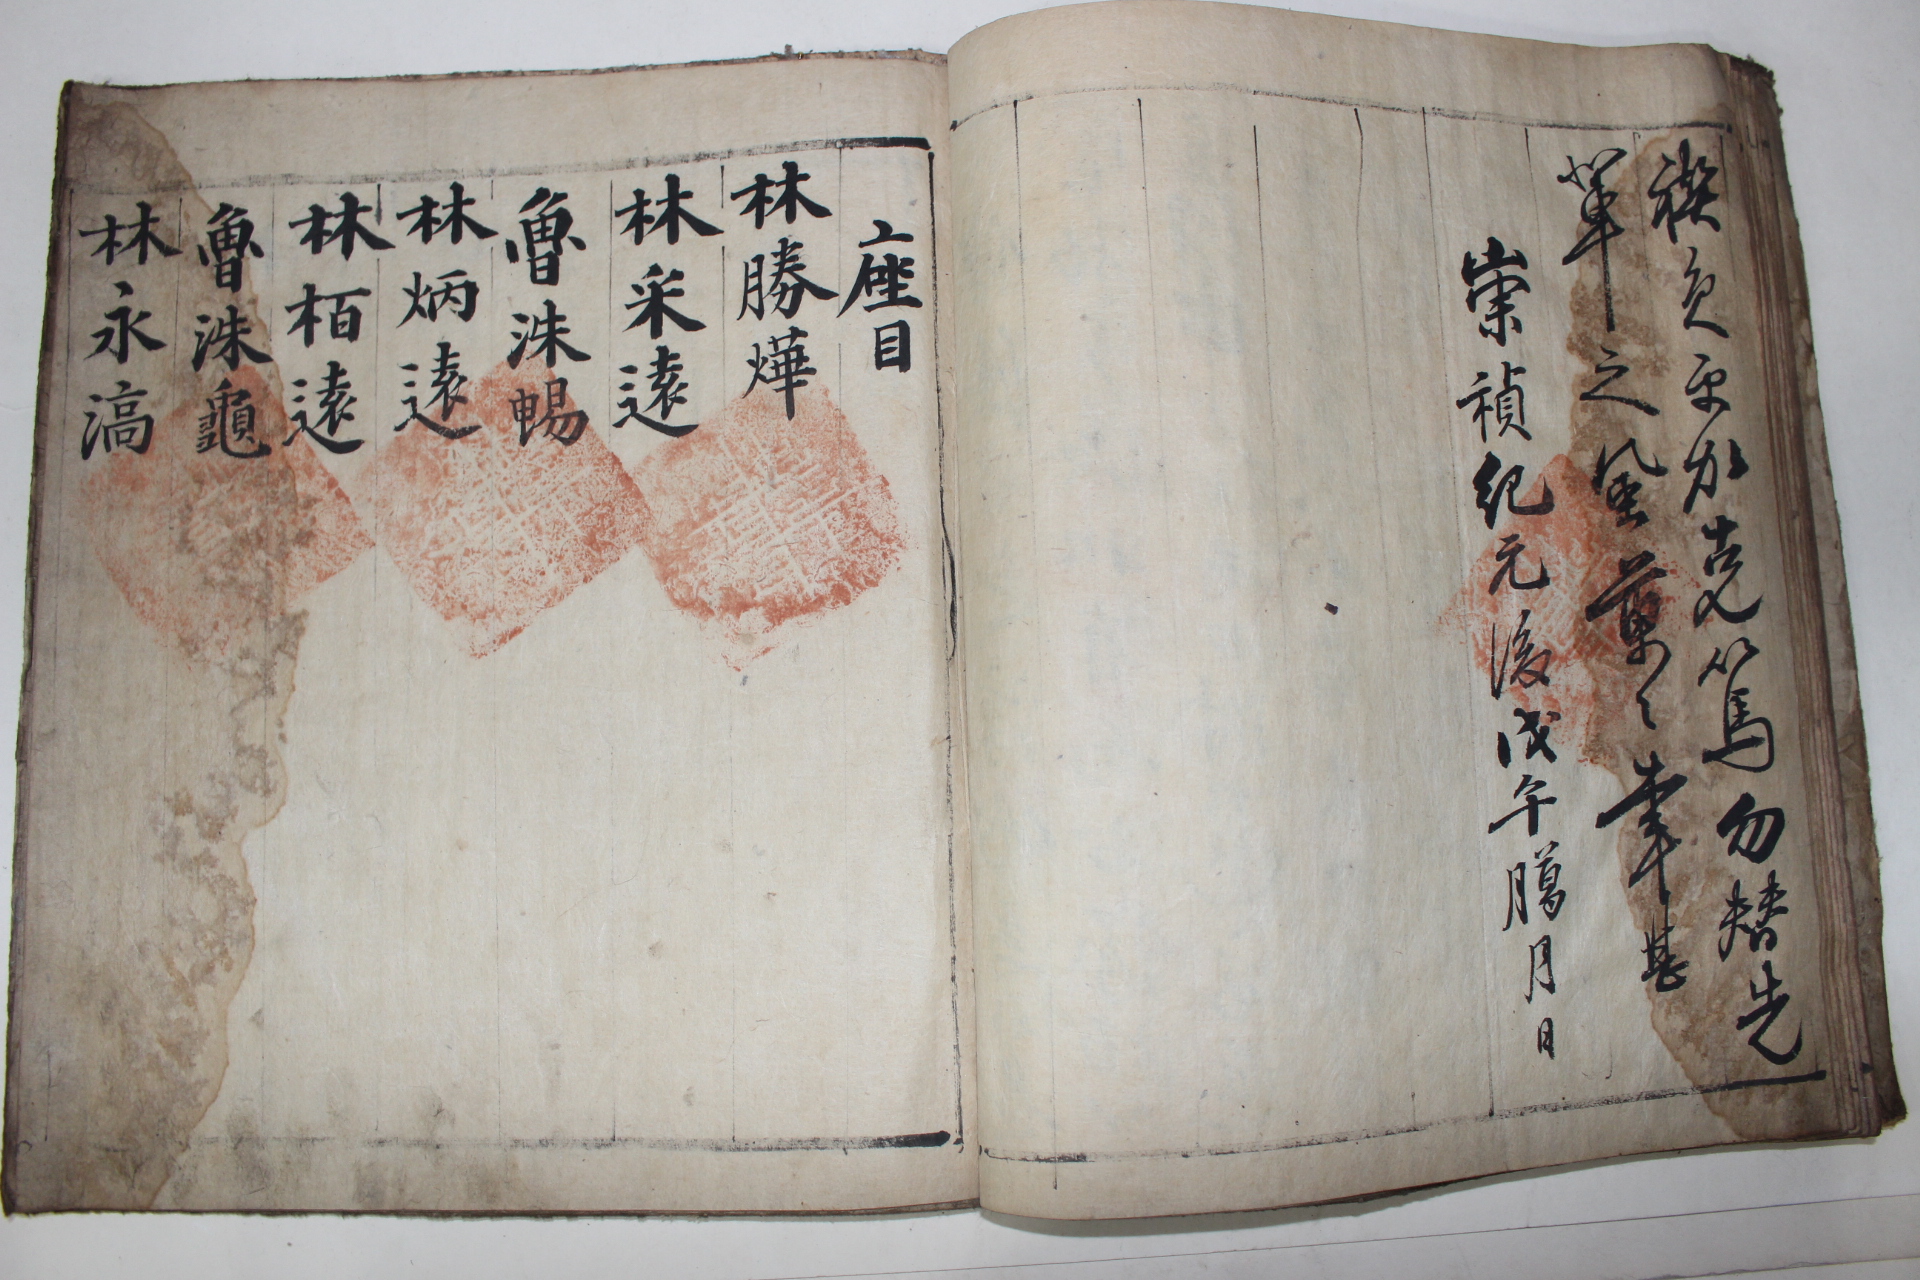 禊員更加克篤勿替先
輩之風萬〻幸甚
崇禎紀元後戊午臈月日
座目
林勝燁
林采遠
魯洙暢
林炳遠
林栢遠
魯洙龜
林永滈